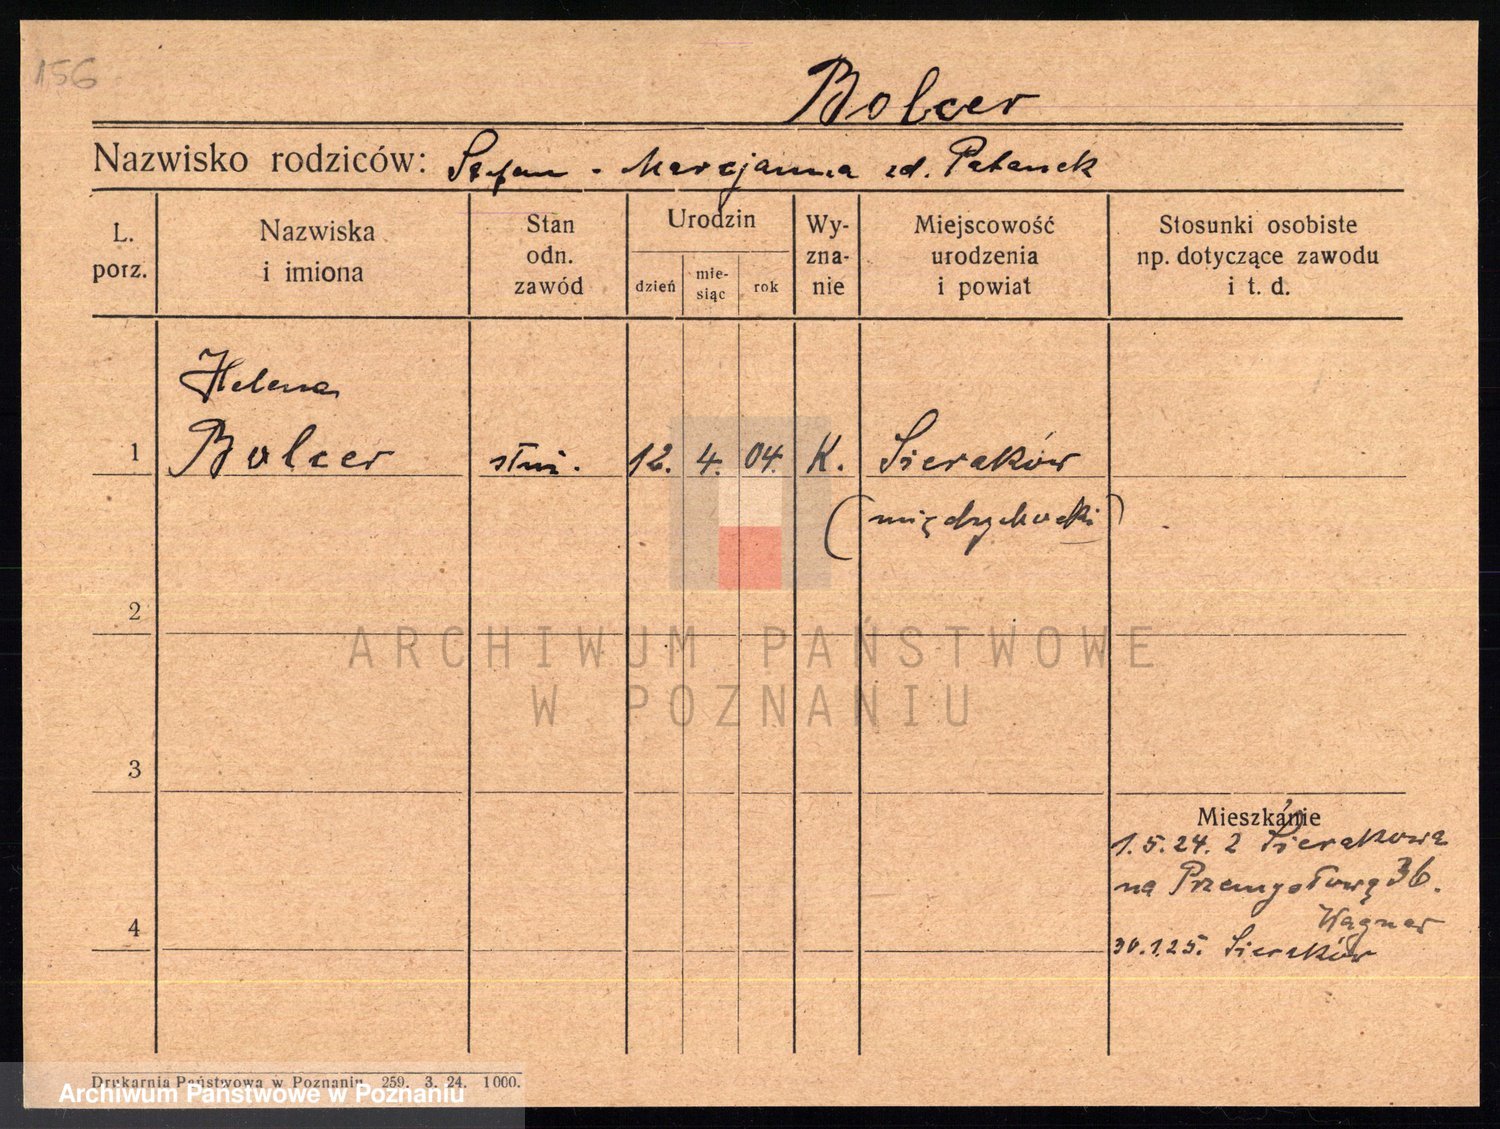 156
Bolcer
Nazwisko rodziców: Stefan - Marcjanna zd. Patanek
L. porz.
Nazwiska i imiona
Stan odn. zawód
Urodzin
dzień
mie- siąc
rok
Wy- zna- nie
Miejscowość urodzenia i powiat
Stosunki osobiste np. dotyczące zawodu i t. d.
Helena
1 Bolcer służ. 12. 4. 04. K. Sieraków
(międzychodzki)
2
3
4
Mieszkanie
1.5.24. z Sierakowa
na Przemysłową 36.
Wagner
30.1.25. Sieraków
ARCHIWUM PAŃSTWOWE
W POZNANIU
Drukarnia Państwowa w Poznaniu 259. 3. 24. 1000.
Archiwum Państwowe w Poznaniu